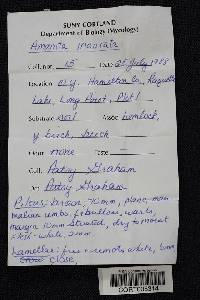 SUNY CORTLAND
Department of Biology (Mycology)
Amanita
Coll. no. 15 25 July 1988
Location N.Y. Hamilton Co., Raquette
Lake, Long Point, Plot 1
Substrate soil Assoc. hemlock,
y birch, beech
Odor none
Coll. Patsy Graham
Det. Patsy Graham
Pileus: brown, 70mm, plane, non-
umbo, warts,
margin 10mm striated, dry to moist
white, 3mm
Lamellae: free + remote, white, 5mm
close,